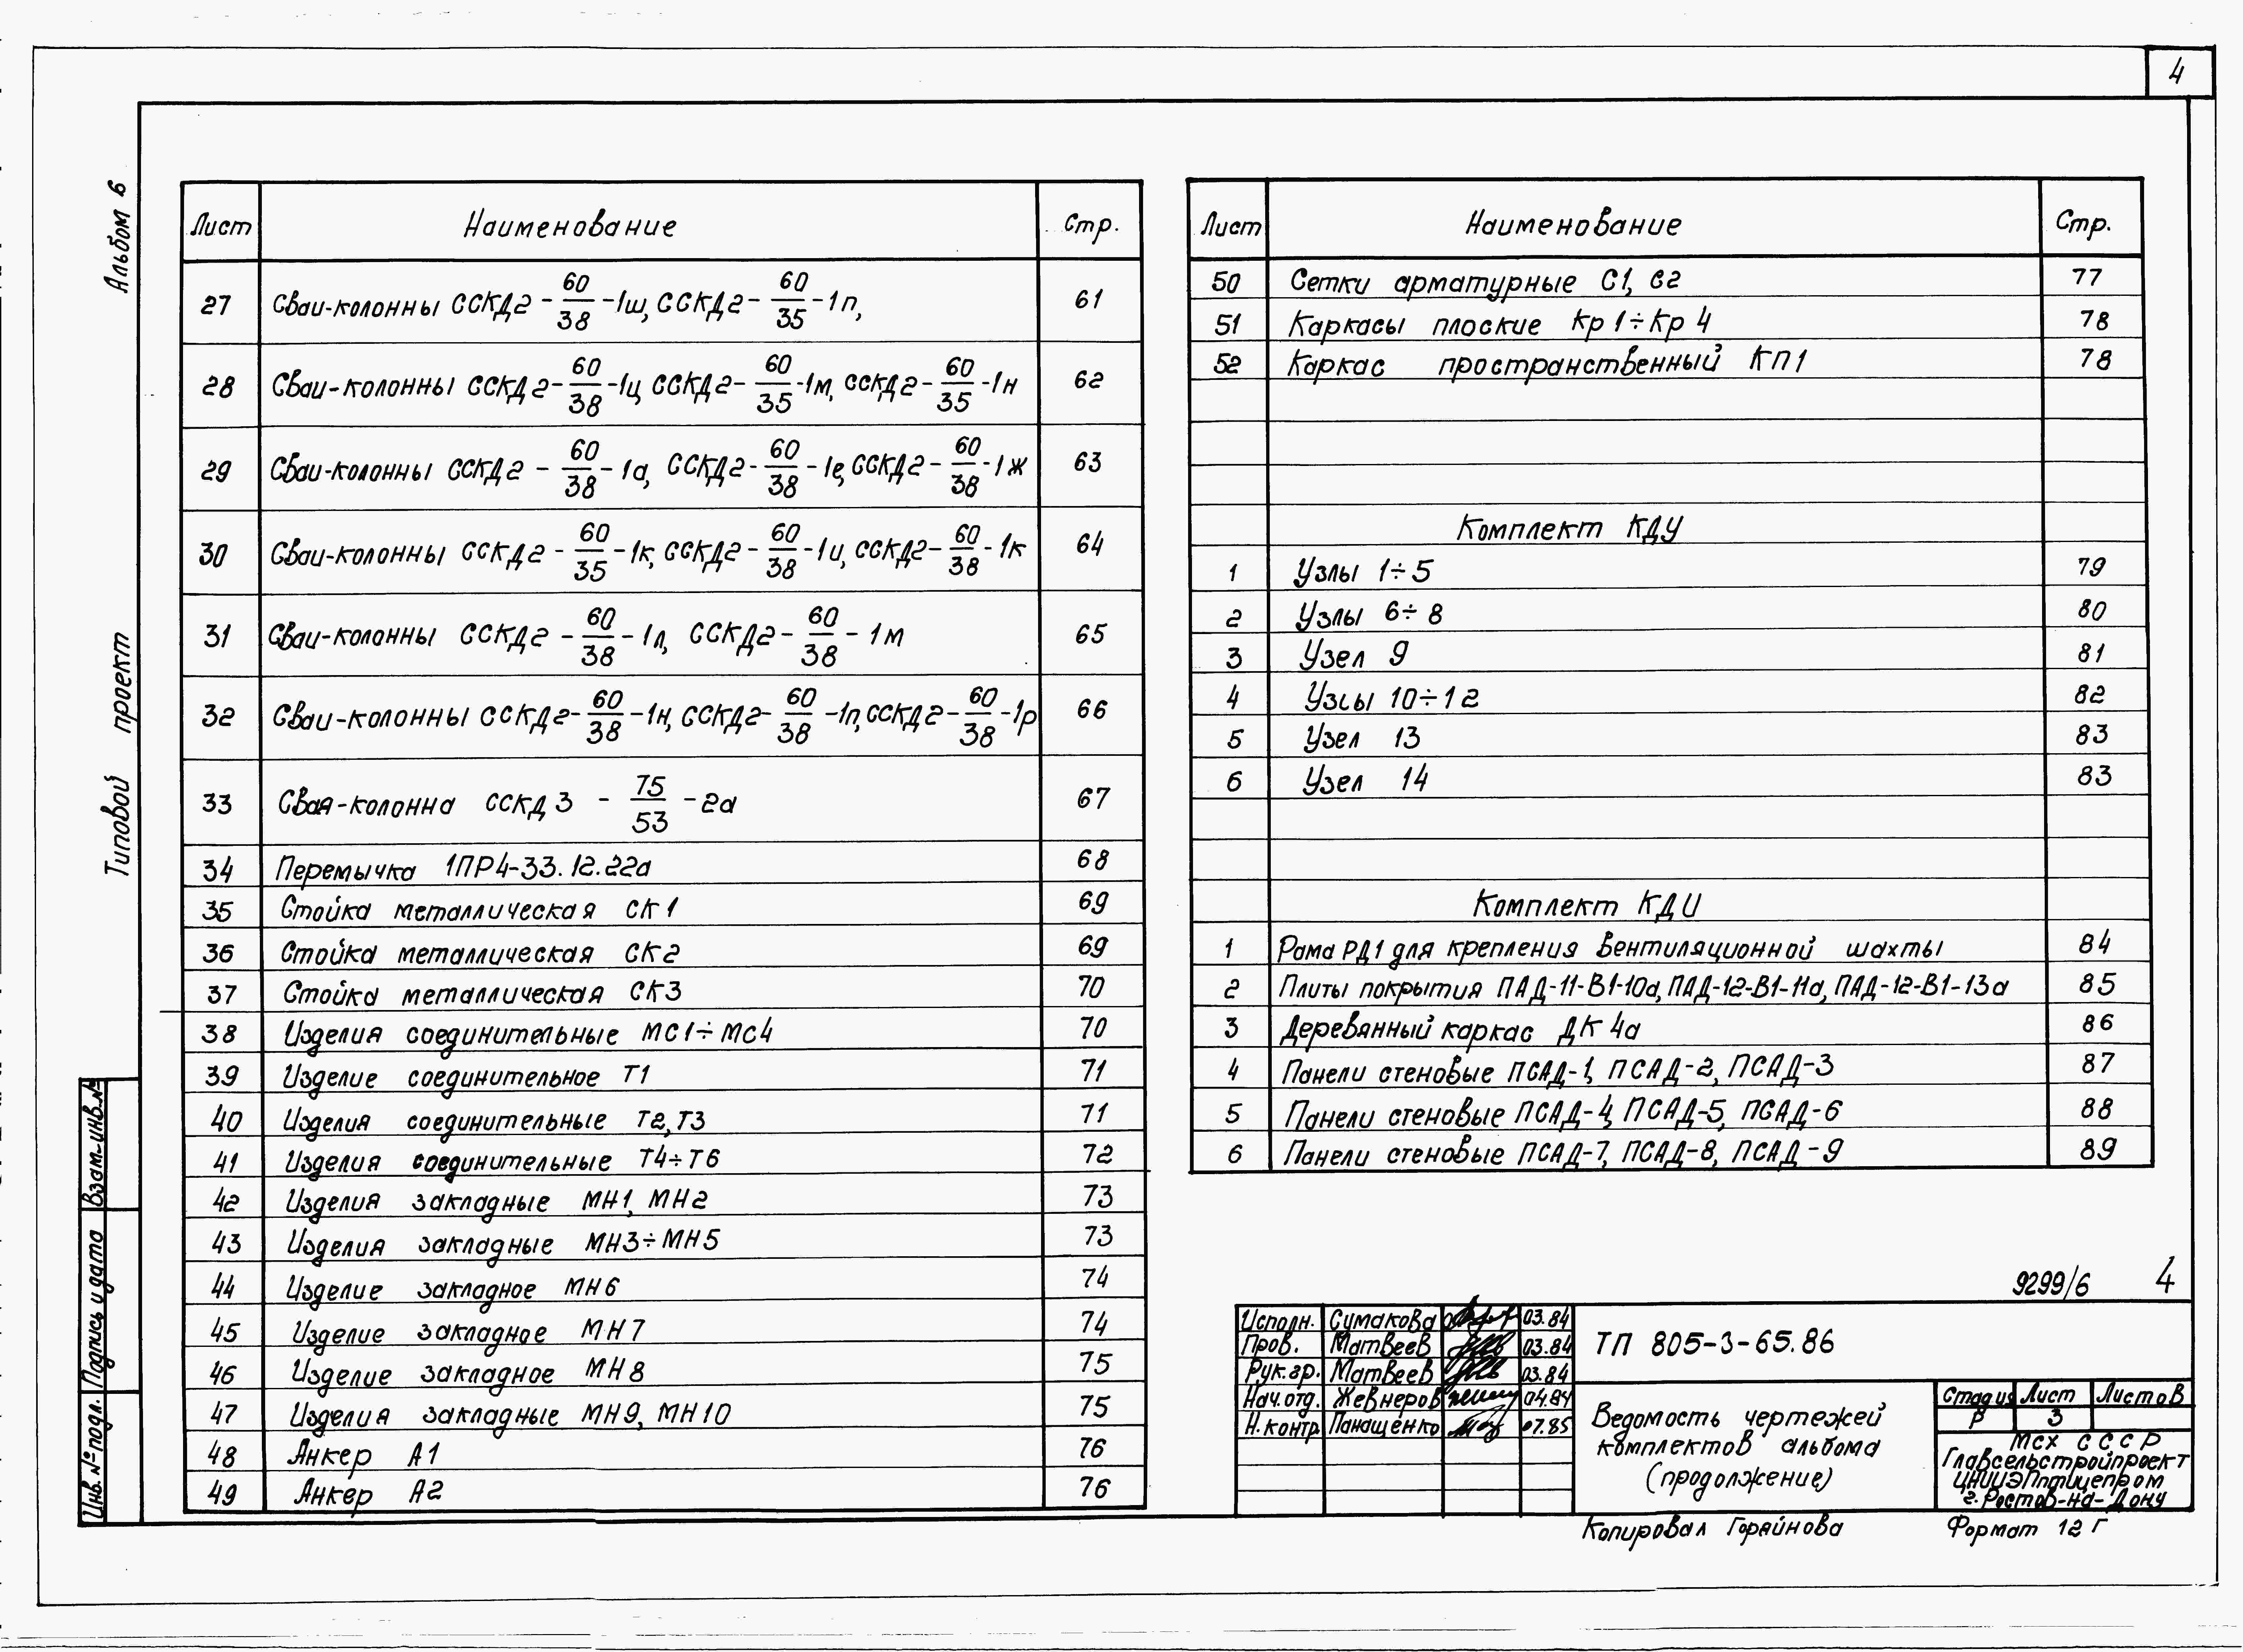 4
Альбом 6
Типовой проект
Взам-инв.№
Подпись и дата
Инв.№ подл.
Лист Наименование Стр.
27 Сваи-колонны ССКД2-60/38-1ш, ССКД2-60/35-1п, 61
28 Сваи-колонны ССКД2-60/38-1ц, ССКД2-60/35-1м, ССКД2-60/35-1н 62
29 Сваи-колонны ССКД2-60/38-1а, ССКД2-60/38-1е, ССКД2-60/38-1ж 63
30 Сваи-колонны ССКД2-60/35-1к, ССКД2-60/38-1и, ССКД2-60/38-1к 64
31 Сваи-колонны ССКД2-60/38-1л, ССКД2-60/38-1м 65
32 Сваи-колонны ССКД2-60/38-1н, ССКД2-60/38-1п, ССКД2-60/38-1р 66
33 Свая-колонна ССКД3-75/53-2а 67
34 Перемычка 1ПР4-33.12.22а 68
35 Стойка металлическая СК1 69
36 Стойка металлическая СК2 69
37 Стойка металлическая СК3 70
38 Изделия соединительные МС1÷МС4 70
39 Изделие соединительное Т1 71
40 Изделия соединительные Т2,Т3 71
41 Изделия соединительные Т4÷Т6 72
42 Изделия закладные МН1, МН2 73
43 Изделия закладные МН3÷МН5 73
44 Изделие закладное МН6 74
45 Изделие закладное МН7 74
46 Изделие закладное МН8 75
47 Изделия закладные МН9, МН10 75
48 Анкер А1 76
49 Анкер А2 76
Лист Наименование Стр.
50 Сетки арматурные С1, С2 77
51 Каркасы плоские Кр1÷Кр4 78
52 Каркас пространственный КП1 78
Комплект КДУ
1 Узлы 1÷5 79
2 Узлы 6÷8 80
3 Узел 9 81
4 Узлы 10÷12 82
5 Узел 13 83
6 Узел 14 83
Комплект КДИ
1 Рама РД1 для крепления вентиляционной шахты 84
2 Плиты покрытия ПАД-11-В1-10а, ПАД-12-В1-11а, ПАД-12-В1-13а 85
3 Деревянный каркас ДК4а 86
4 Панели стеновые ПСАД-1, ПСАД-2, ПСАД-3 87
5 Панели стеновые ПСАД-4, ПСАД-5, ПСАД-6 88
6 Панели стеновые ПСАД-7, ПСАД-8, ПСАД-9 89
9299/6 4
Исполн. Сумакова 03.84
Пров. Матвеев 03.84
Рук.гр. Матвеев 03.84
Нач.отд. Жевнеров 04.84
Н.контр. Панащенко 07.85
ТП 805-3-65.86
Ведомость чертежей
комплектов альбома
(продолжение)
Стадия Лист Листов
Р 3
МСХ СССР
Главсельстройпроект
ЦНИИЭПптицепром
г.Ростов-на-Дону
Копировал Горяйнова Формат 12 Г